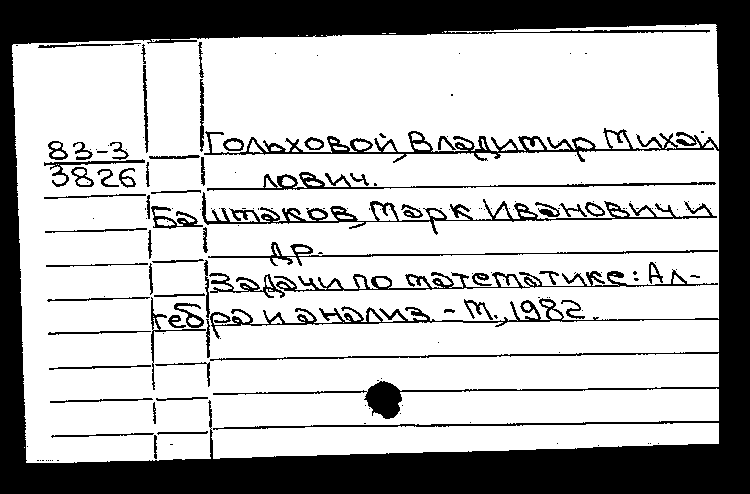 83-3
3826
Гольховой, Владимир Михай
лович.
Баштаков, Марк Иванович и
др.
Задачи по математике: Ал-
гебра и анализ. - М., 1982.